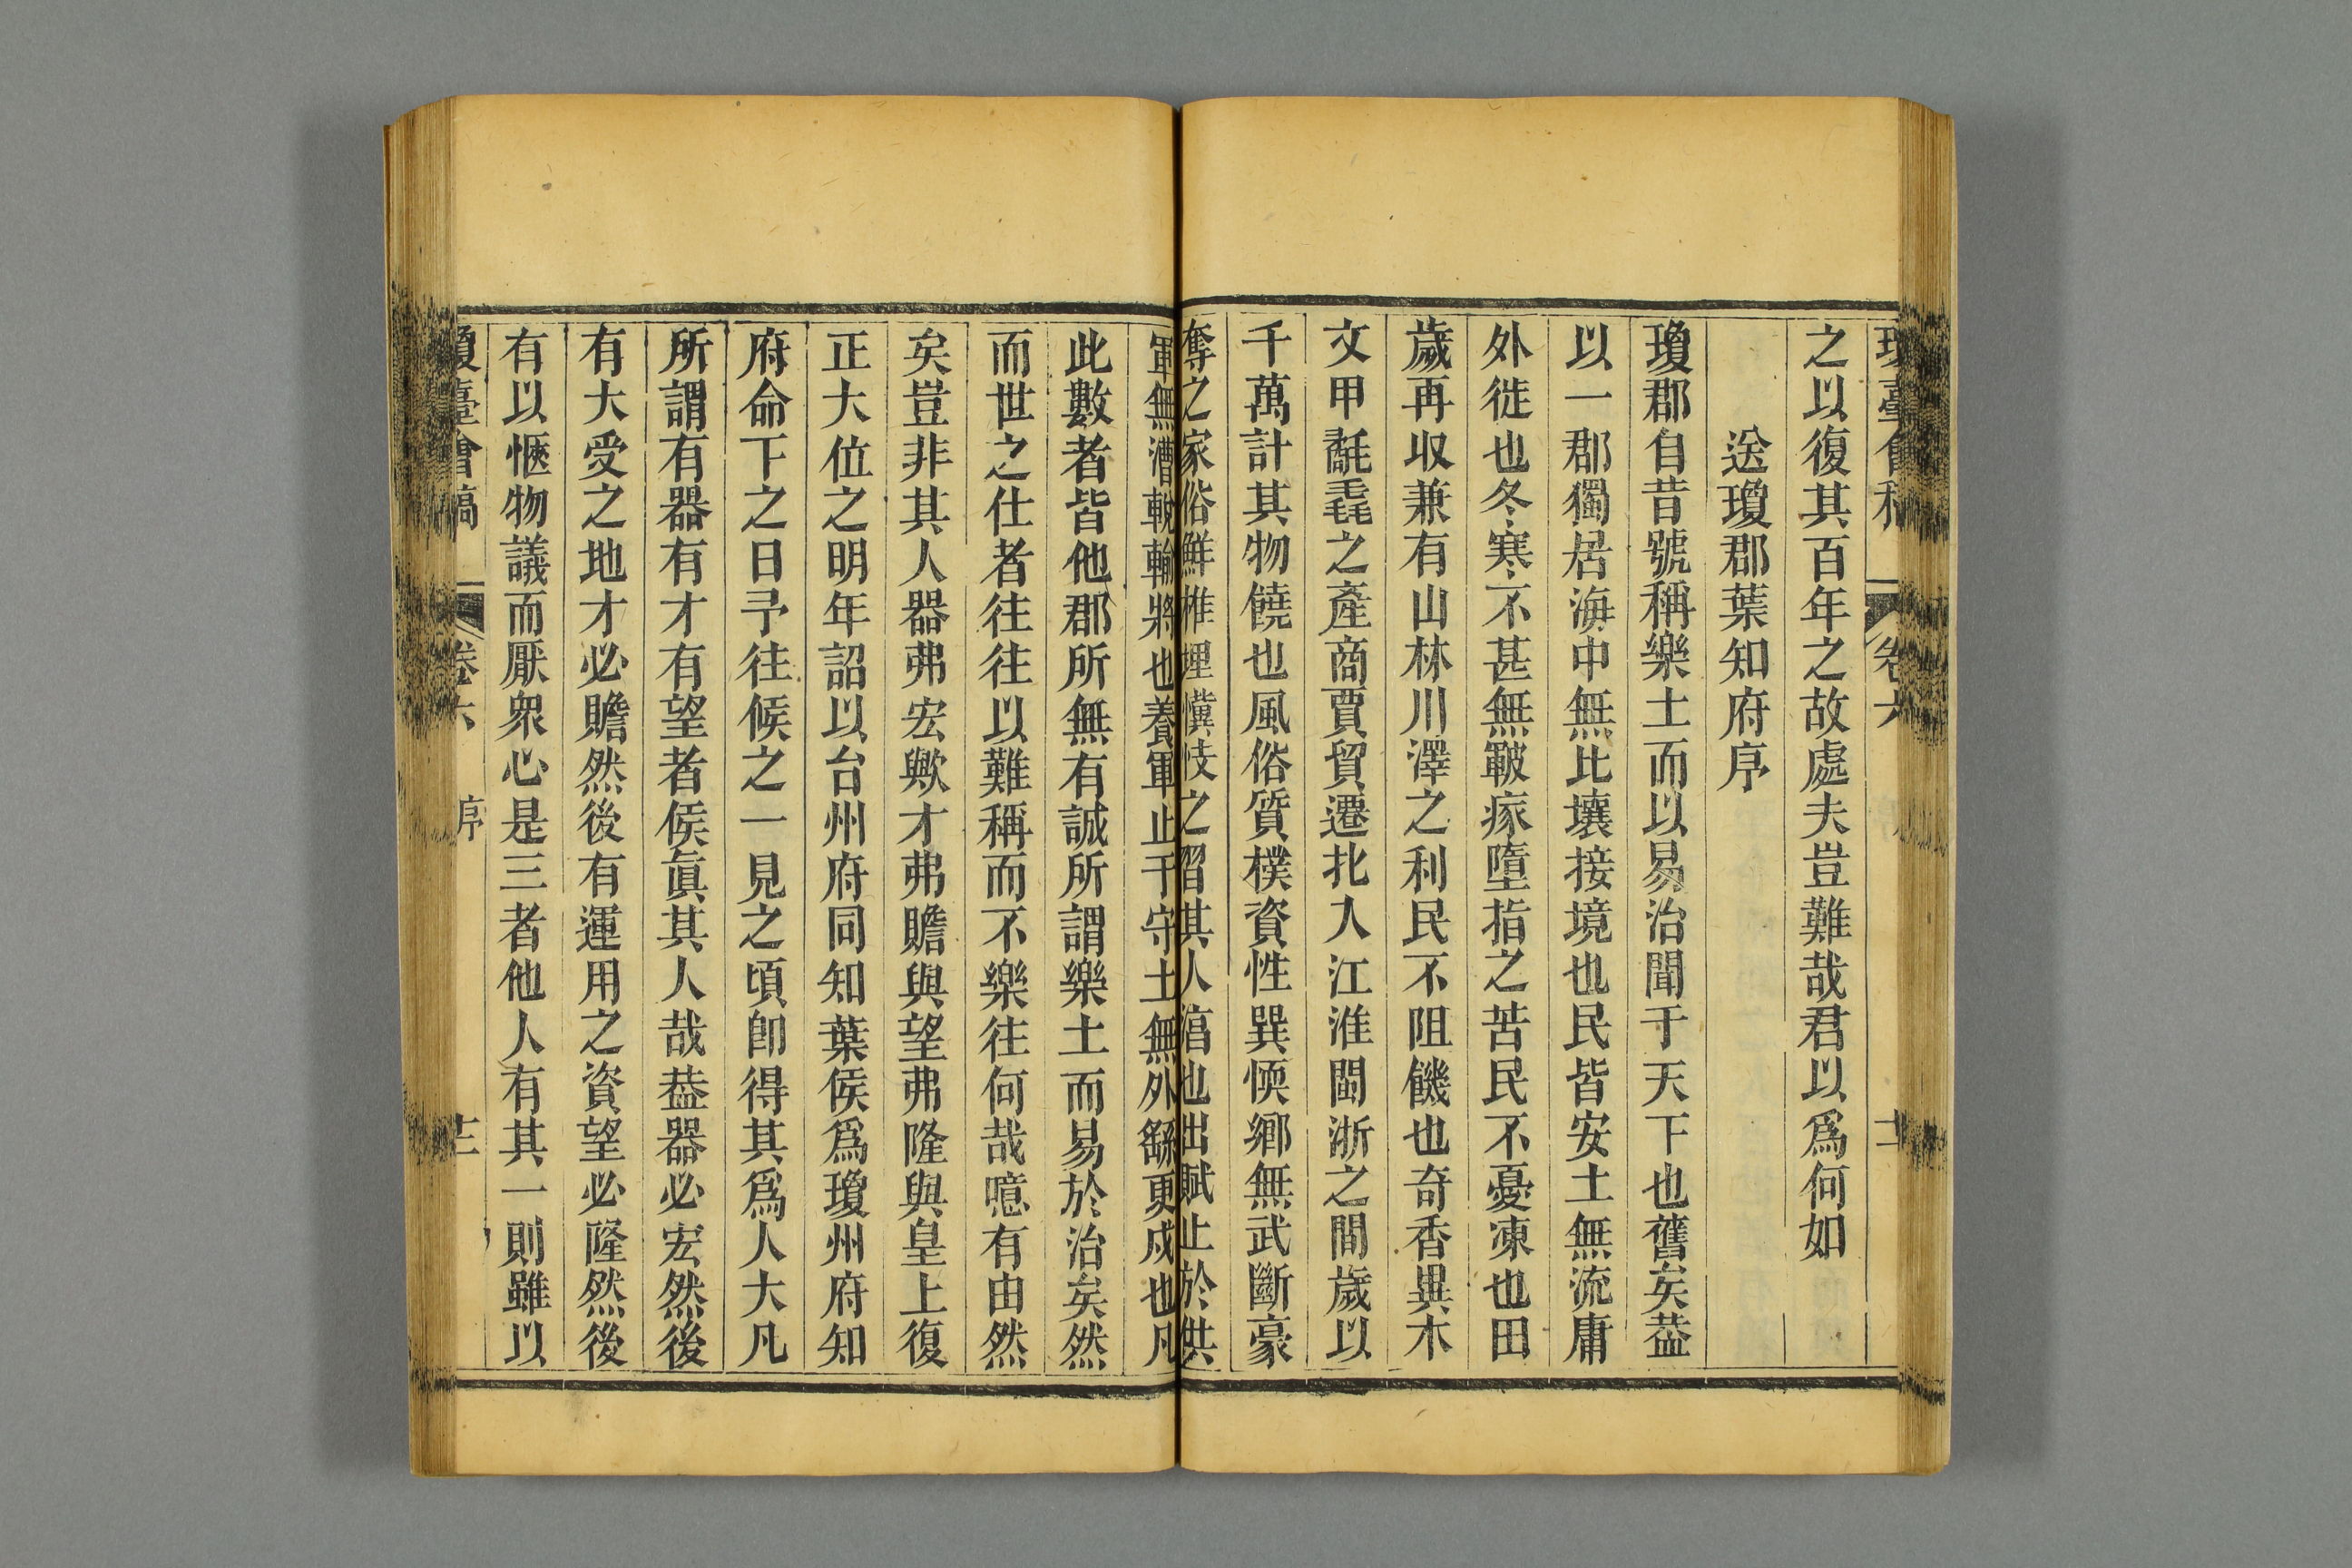 之以復其百年之故處夫豈難哉君以爲何如
送瓊郡葉知府序
瓊郡自昔號稱樂土而以易治聞于天下也舊矣葢
以一郡獨居海中無比壤接境也民皆安土無流庸
外徙也冬寒不甚無皸瘃墮指之苦民不憂凍也田
歲再收兼有山林川澤之利民不阻饑也奇香異木
文甲氄毳之產商賈貿遷北人江淮閩浙之間歲以
千萬計其物饒也風俗質樸資性巽愞鄉無武斷豪
奪之家俗鮮椎埋懻忮之習其人淐也出賦止於供
軍無漕輓輸將也養軍止于守土無外繇更戍也凡
此數者皆他郡所無有誠所謂樂土而易於治矣然
而世之仕者往往以難稱而不樂往何哉噫有由然
矣豈非其人器弗宏歟才弗贍與望弗隆與皇上復
正大位之明年詔以台州府同知葉侯爲瓊州府知
府命下之日予往候之一見之頃卽得其爲人大凡
所謂有器有才有望者侯眞其人哉葢器必宏然後
有大受之地才必贍然後有運用之資望必隆然後
有以愜物議而厭衆心是三者他人有其一則雖以
瓊臺會稿 卷六 序